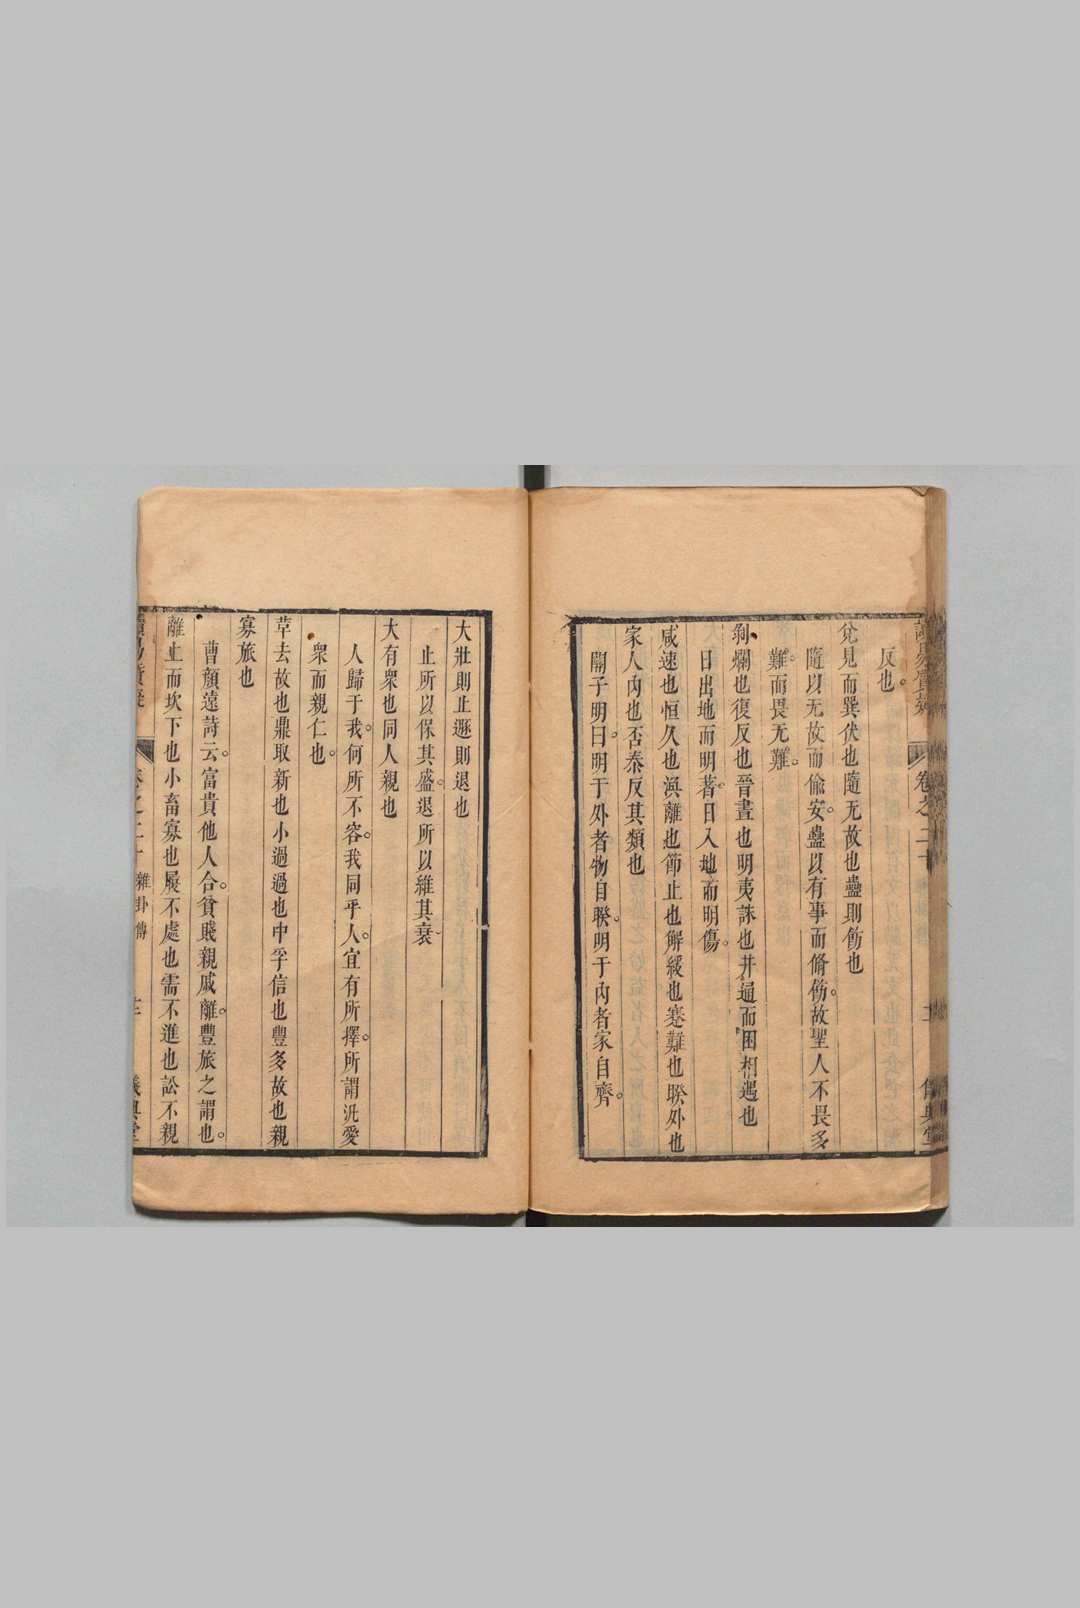 反也。
兌見而巽伏也隨无故也蠱則飭也
隨以无故而偷安。蠱以有事而脩飭。故聖人不畏多
難。而畏无難。
剝爛也復反也晉晝也明夷誅也井通而困相遇也
日出地而明著。日入地而明傷。
咸速也恒久也渙離也節止也解緩也蹇難也睽外也
家人內也否泰反其類也
關子明曰。明于外者物自睽。明于內者家自齊。
大壯則止遯則退也
止所以保其盛。退所以維其衰。
大有衆也同人親也
人歸于我。何所不容。我同乎人。宜有所擇。所謂汎愛
衆而親仁也。
革去故也鼎取新也小過過也中孚信也豐多故也親
寡旅也
曹顏遠詩云。富貴他人合。貧賤親戚離。豐旅之謂也。
離上而坎下也小畜寡也履不處也需不進也訟不親
讀易質疑 卷之二十 雜卦傳 三 儀興堂